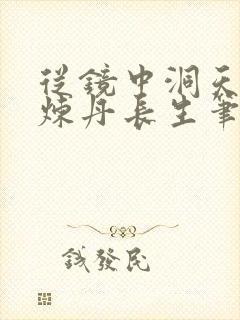 從鏡中洞天
煉丹長生筆
錢發民